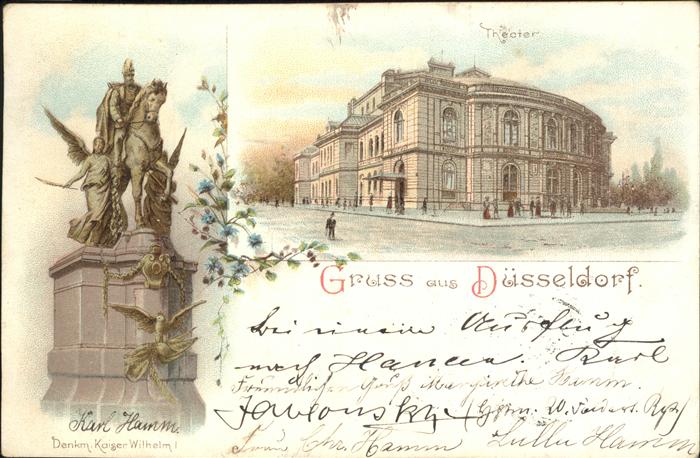 Theater
Gruss aus Düsseldorf.
Bei einem Ausflug
nach Karl
Freundlichen Gruß Hamm.
Jablonsky
Karl Hamm.
Denkm. Kaiser Wilhelm I
Frau Chr. Hamm Lulu Hamm